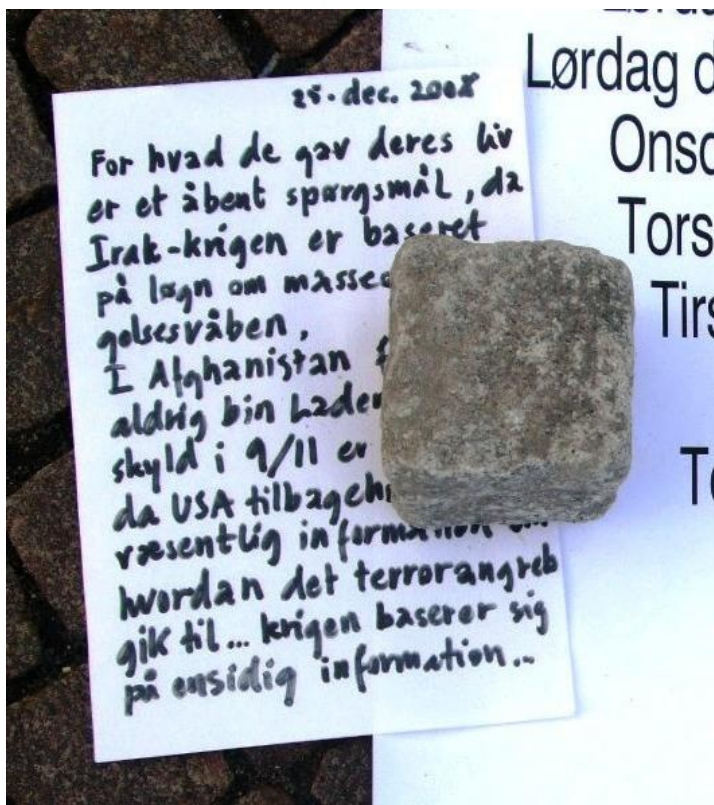 25. dec. 2008
For hvad de gav deres liv
er et åbent spørgsmål, da
Irak-krigen er baseret
på løgn om masse
gelsesvåben.
I Afghanistan
aldrig bin Laden
skyld i 9/11 er
da USA tilbage
væsentlig information om
hvordan det terrorangreb
gik til... krigen baserer sig
på ensidig information...
Lørdag d
Onsd
Tors
Tirs